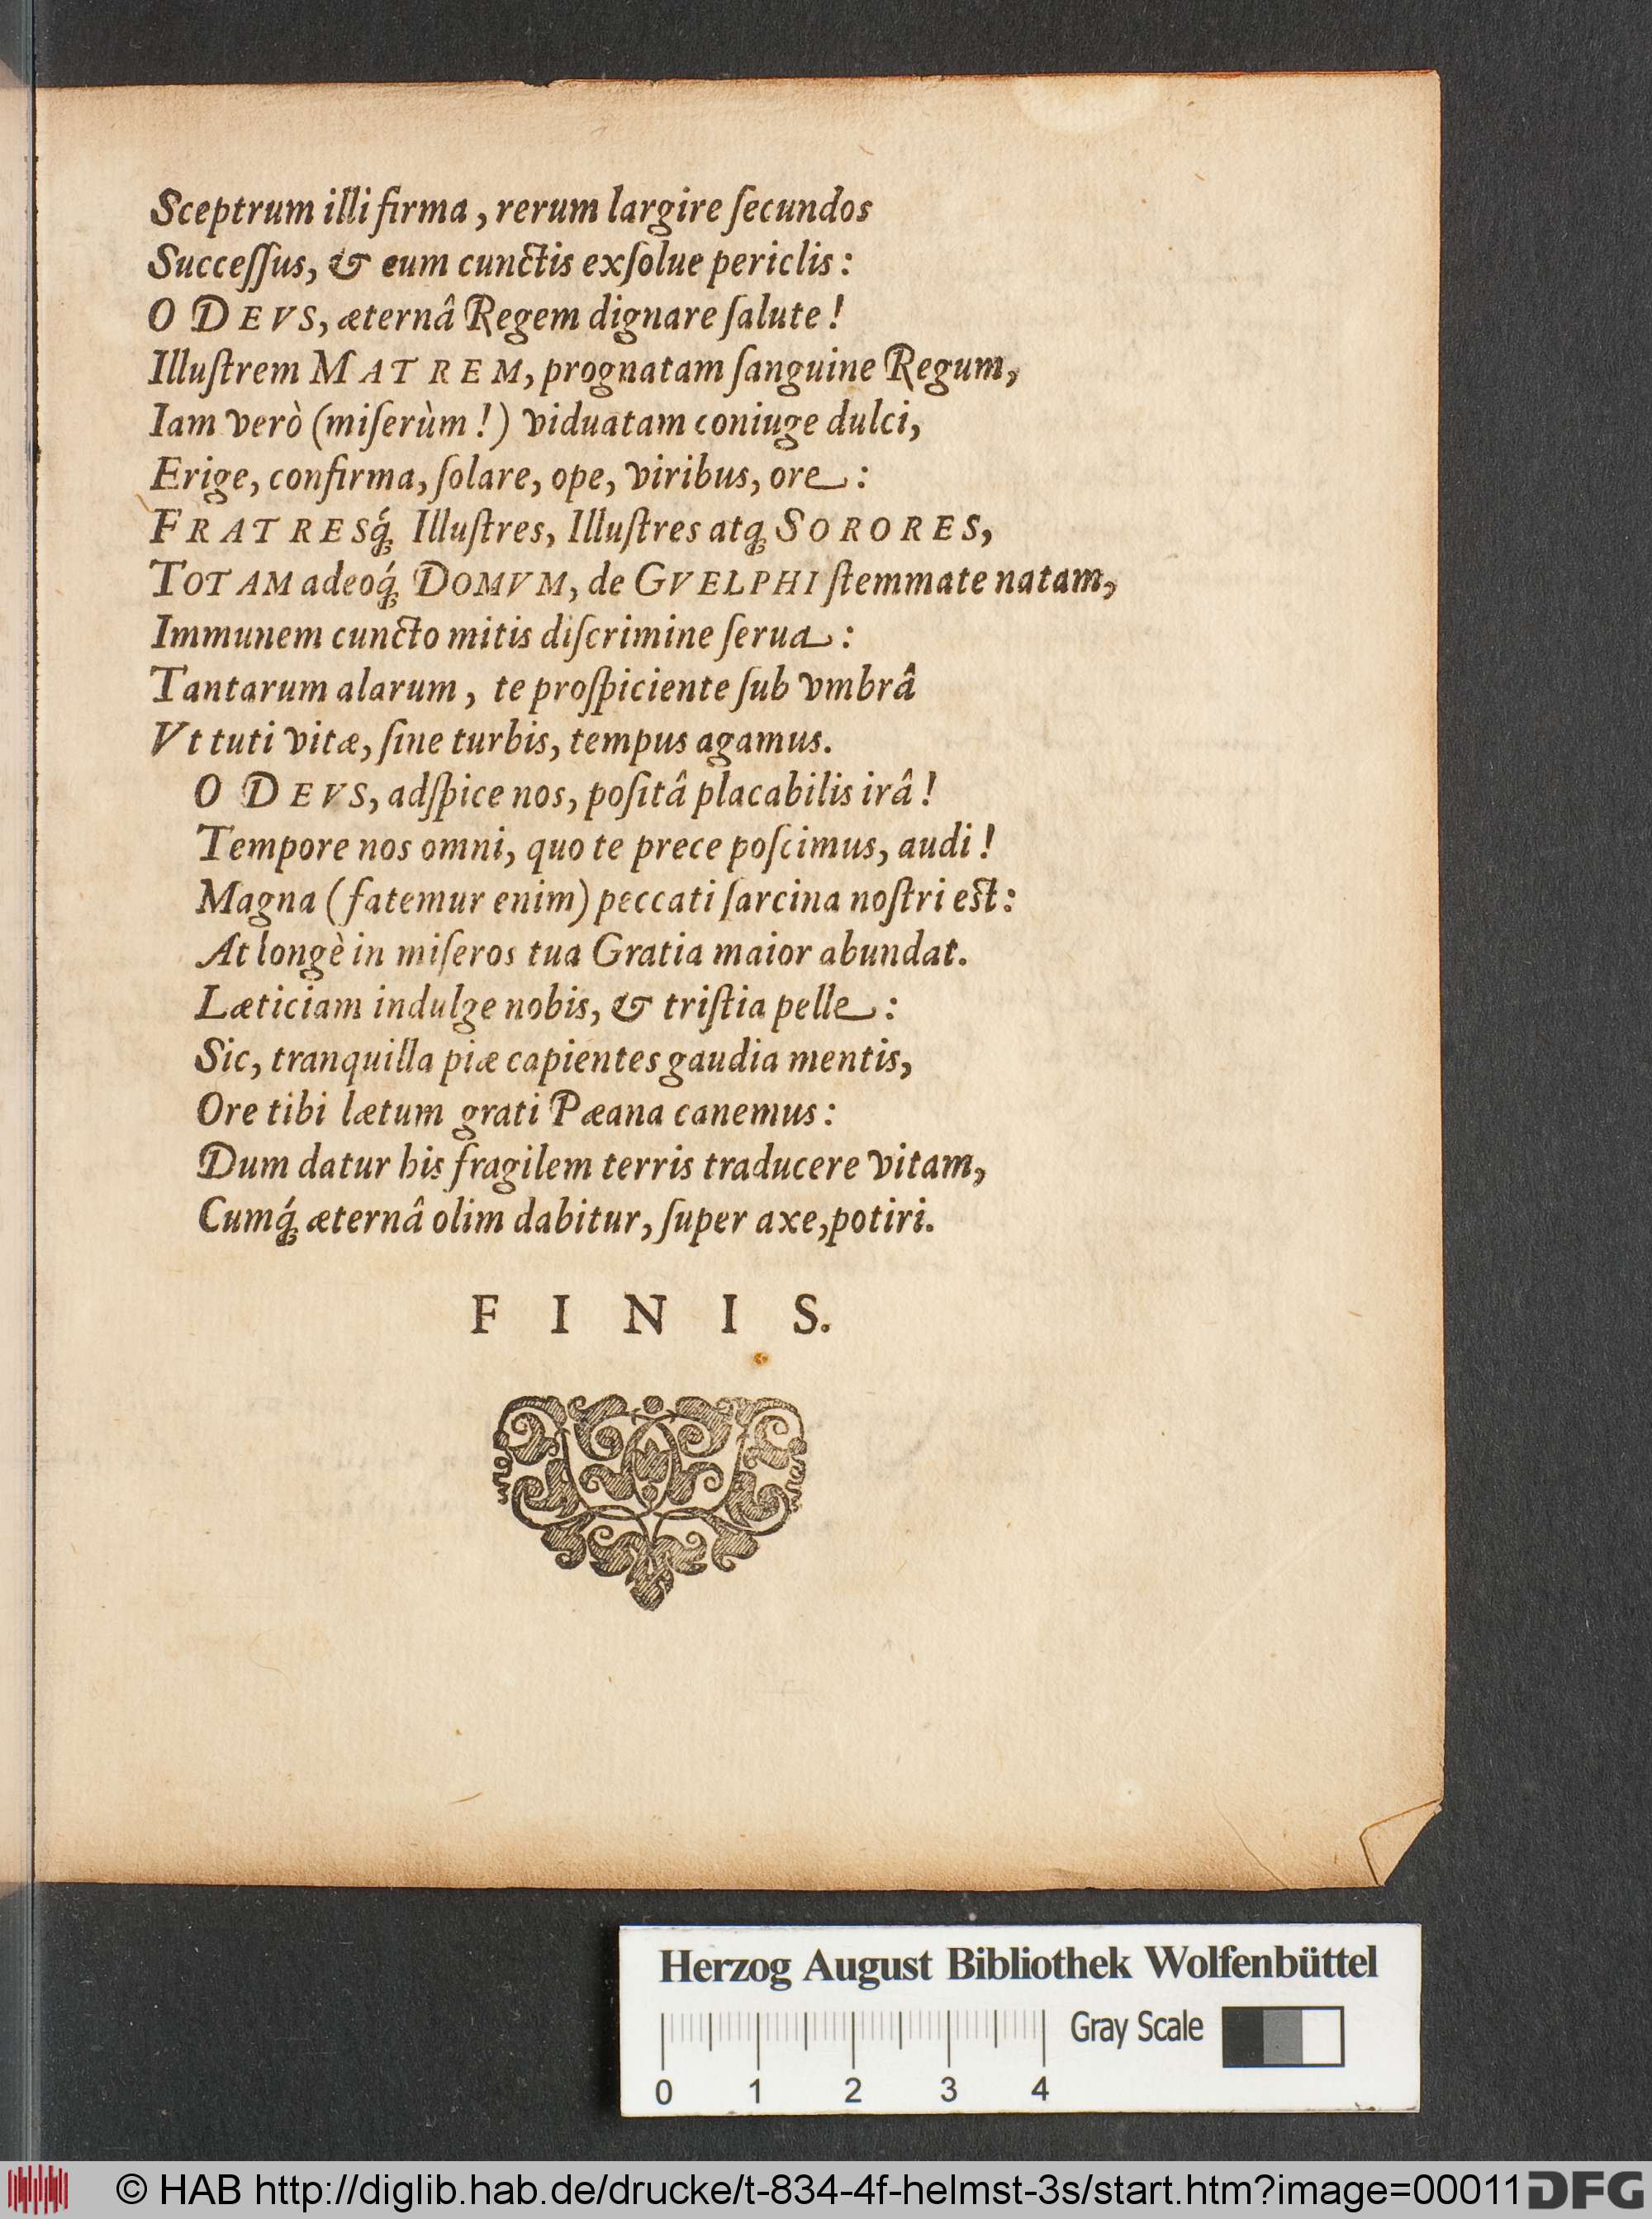 Sceptrum illi firma, rerum largire ſecundos
Succeſſus, & eum cunctis exſolue periclis:
O DEVS, æternâ Regem dignare ſalute!
Illuſtrem MATREM, prognatam ſanguine Regum,
Iam verò (miſerùm!) viduatam coniuge dulci,
Erige, confirma, ſolare, ope, viribus, ore:
FRATRESq́; Illuſtres, Illuſtres atq; SORORES,
TOTAM adeoq́; DOMVM, de GVELPHI ſtemmate natam,
Immunem cuncto mitis diſcrimine ſerua:
Tantarum alarum, te proſpiciente ſub vmbrâ
Vt tuti vitæ, ſine turbis, tempus agamus.
O DEVS, adſpice nos, poſitâ placabilis irâ!
Tempore nos omni, quo te prece poſcimus, audi!
Magna (fatemur enim) peccati ſarcina noſtri est:
At longè in miſeros tua Gratia maior abundat.
Læticiam indulge nobis, & triſtia pelle:
Sic, tranquilla piæ capientes gaudia mentis,
Ore tibi lætum grati Pæana canemus:
Dum datur his fragilem terris traducere vitam,
Cumq́; æternâ olim dabitur, ſuper axe, potiri.
FINIS.
Herzog August Bibliothek Wolfenbüttel
Gray Scale
0 1 2 3 4
© HAB http://diglib.hab.de/drucke/t-834-4f-helmst-3s/start.htm?image=00011 DFG